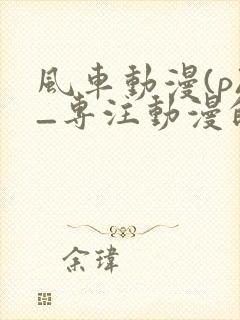 風車動漫(p
–專注動漫的
余瑋